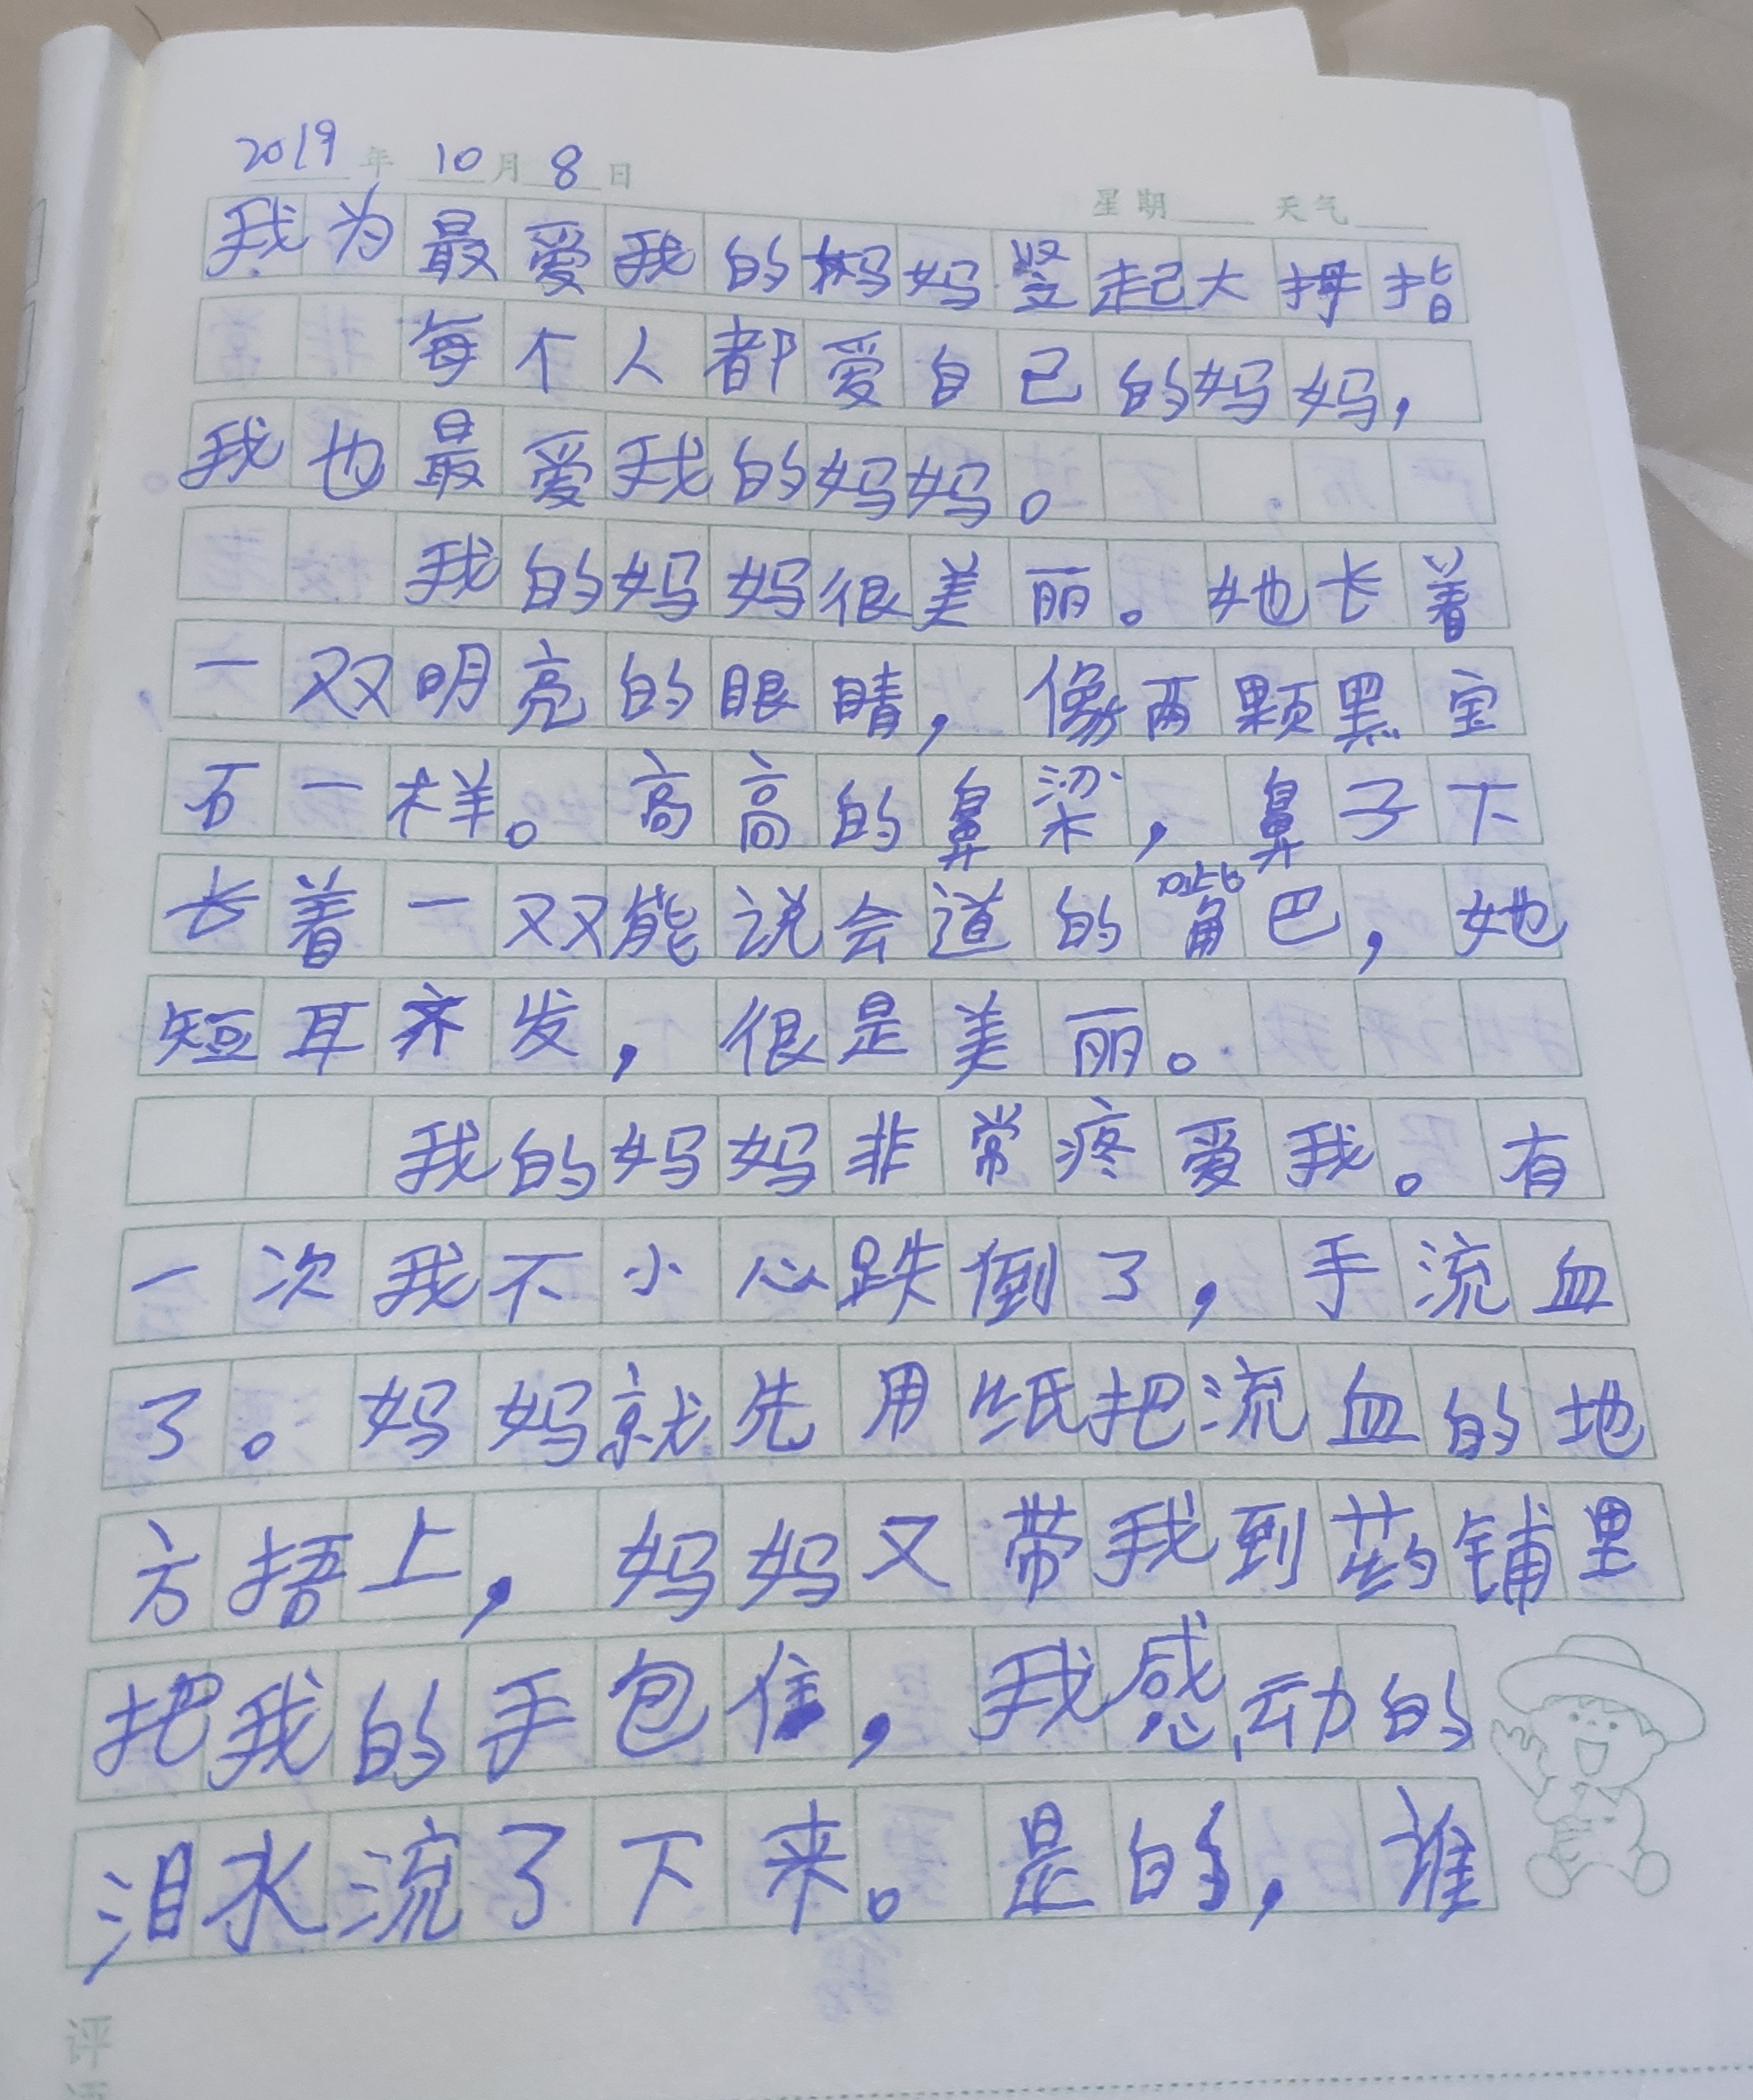 2019年10月8日 星期 天气
我为最爱我的妈妈竖起大拇指
每个人都爱自己的妈妈，
我也最爱我的妈妈。
我的妈妈很美丽。她长着
一双明亮的眼睛，像两颗黑宝
石一样。高高的鼻梁，鼻子下
长着一双能说会道的嘴巴，她
短耳齐发，很是美丽。
我的妈妈非常疼爱我。有
一次我不小心跌倒了，手流血
了。妈妈就先用纸把流血的地
方捂上，妈妈又带我到药铺里
把我的手包住，我感动的
泪水流了下来。是的，谁
评